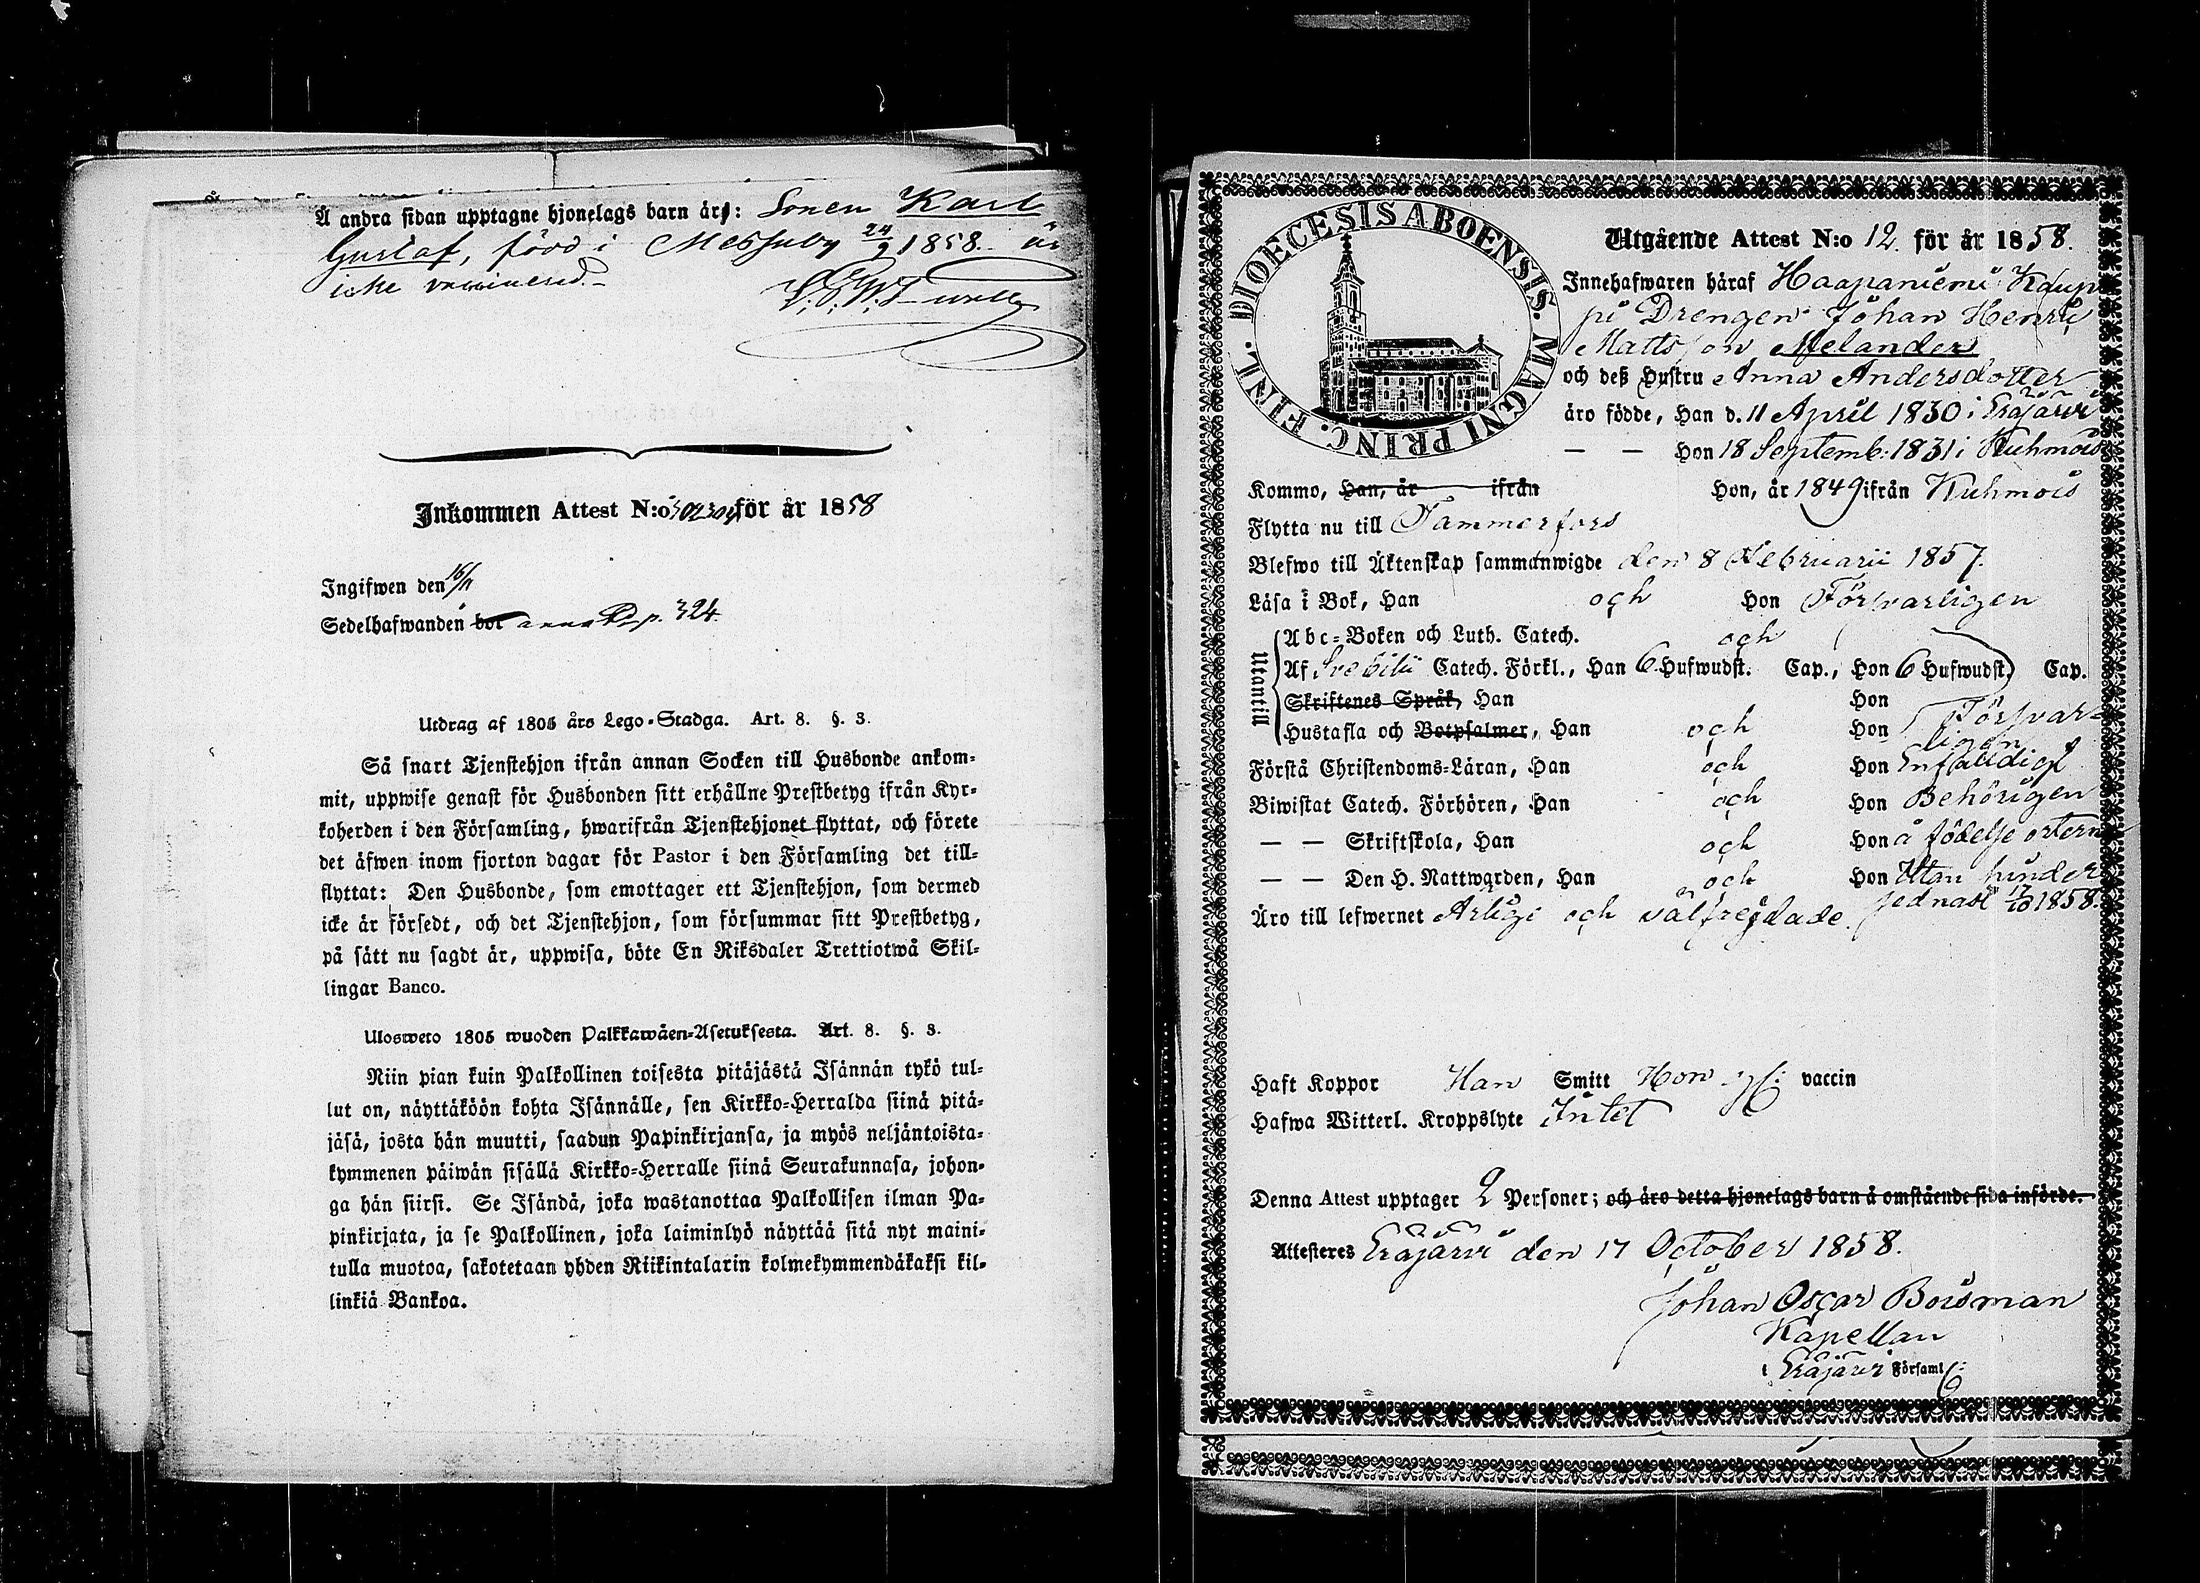 Å andra sidan upptagne hjonelags barn är: Sonen Karl
Gustaf, född i Messuby 24/9 1858. är
icke vaccinerad.
Inkommen Attest N:o för år 1858
Ingifwen den
Sedelhafwanden bor p. 324.
Utdrag af 1805 års Lego-Stadga. Art. 8. §. 3.
Så snart Tjenstehjon ifrån annan Socken till Husbonde ankom-
mit, uppwise genast för Husbonden sitt erhållne Prestbetyg ifrån Kyr-
koherden i den Församling, hwarifrån Tjenstehjonet flyttat, och förete
det äfwen inom fjorton dagar för Pastor i den Församling det till-
flyttat: Den Husbonde, som emottager ett Tjenstehjon, som dermed
icke är försedt, och det Tjenstehjon, som försummar sitt Prestbetyg,
på sätt nu sagdt är, uppwisa, böte En Riksdaler Trettiotwå Skil-
lingar Banco.
Ulosweto 1805 wuoden Palkkawäen-Asetuksesta. Art. 8. §. 3.
Niin pian kuin Palkollinen toisesta pitäjästä Isännän tykö tul-
lut on, näyttäköön kohta Isännälle, sen Kirkko-Herralda siinä pitä-
jäsä, josta hän muutti, saadun Papinkirjansa, ja myös neljäntoista-
kymmenen päiwän sisällä Kirkko-Herralle siinä Seurakunnasa, johon-
ga hän siirsi. Se Isändä, joka wastanottaa Palkollisen ilman Pa-
pinkirjata, ja se Palkollinen, joka laiminlyö näyttää sitä nyt maini-
tulla muotoa, sakotetaan yhden Riikintalarin kolmekymmendäkaksi kil-
linkiä Bankoa.
DIOECESIS ABOENSIS. MAGNI PRINC. FINL.
Utgående Attest N:o 12 för år 1858.
Innehafwaren häraf Haapaniemi Kaup
pi Drengen Johan Henric
Mattsson Melander
och deß Hustru Anna Andersdotter
äro födde, Han d. 11 April 1830 i Eräjärvi
— — Hon 18 Septemb: 1831 i Kuhmois
Kommo, Han, år ifrån Hon, år 1849 ifrån Kuhmois
Flytta nu till Tammerfors
Blefwo till Äktenskap sammanwigde den 8 Februarii 1857.
Läsa i Bok, Han och Hon Försvarligen
Utantill
Abc-Boken och Luth. Catech. och
Af Svebilii Catech. Förkl., Han 6 Hufwudst. Cap., Hon 6 Hufwudst. Cap.
Skriftenes Språk, Han Hon
Hustafla och Botpsalmer, Han och Hon Försvar-
ligen
Förstå Christendoms-Läran, Han och Hon Enfaldigt
Biwistat Catech. Förhören, Han och Hon Behörigen
— — Skriftskola, Han och Hon å födelse orterna
— — Den H. Nattwarden, Han och Hon Utan hinder
sednast 17/10 1858.
Äro till lefwernet Ärlige och välfrejdade.
Haft Koppor Han Smitt Hon vaccin
Hafwa Witterl. Kroppslyte Intet
Denna Attest upptager 2 Personer; och äro detta hjonelags barn å omstående sida införde.
Attesteres Eräjärvi den 17 October 1858.
Johan Oscar Boisman
Kapellan
i Eräjärvi Församl: